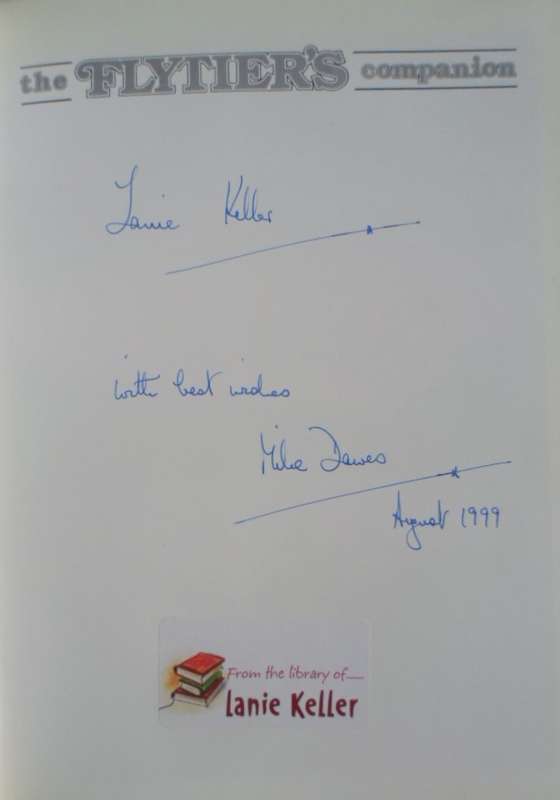 the FLYTIER'S companion
Lanie Keller
with best wishes
Mike Dawes
August 1999
From the library of
Lanie Keller